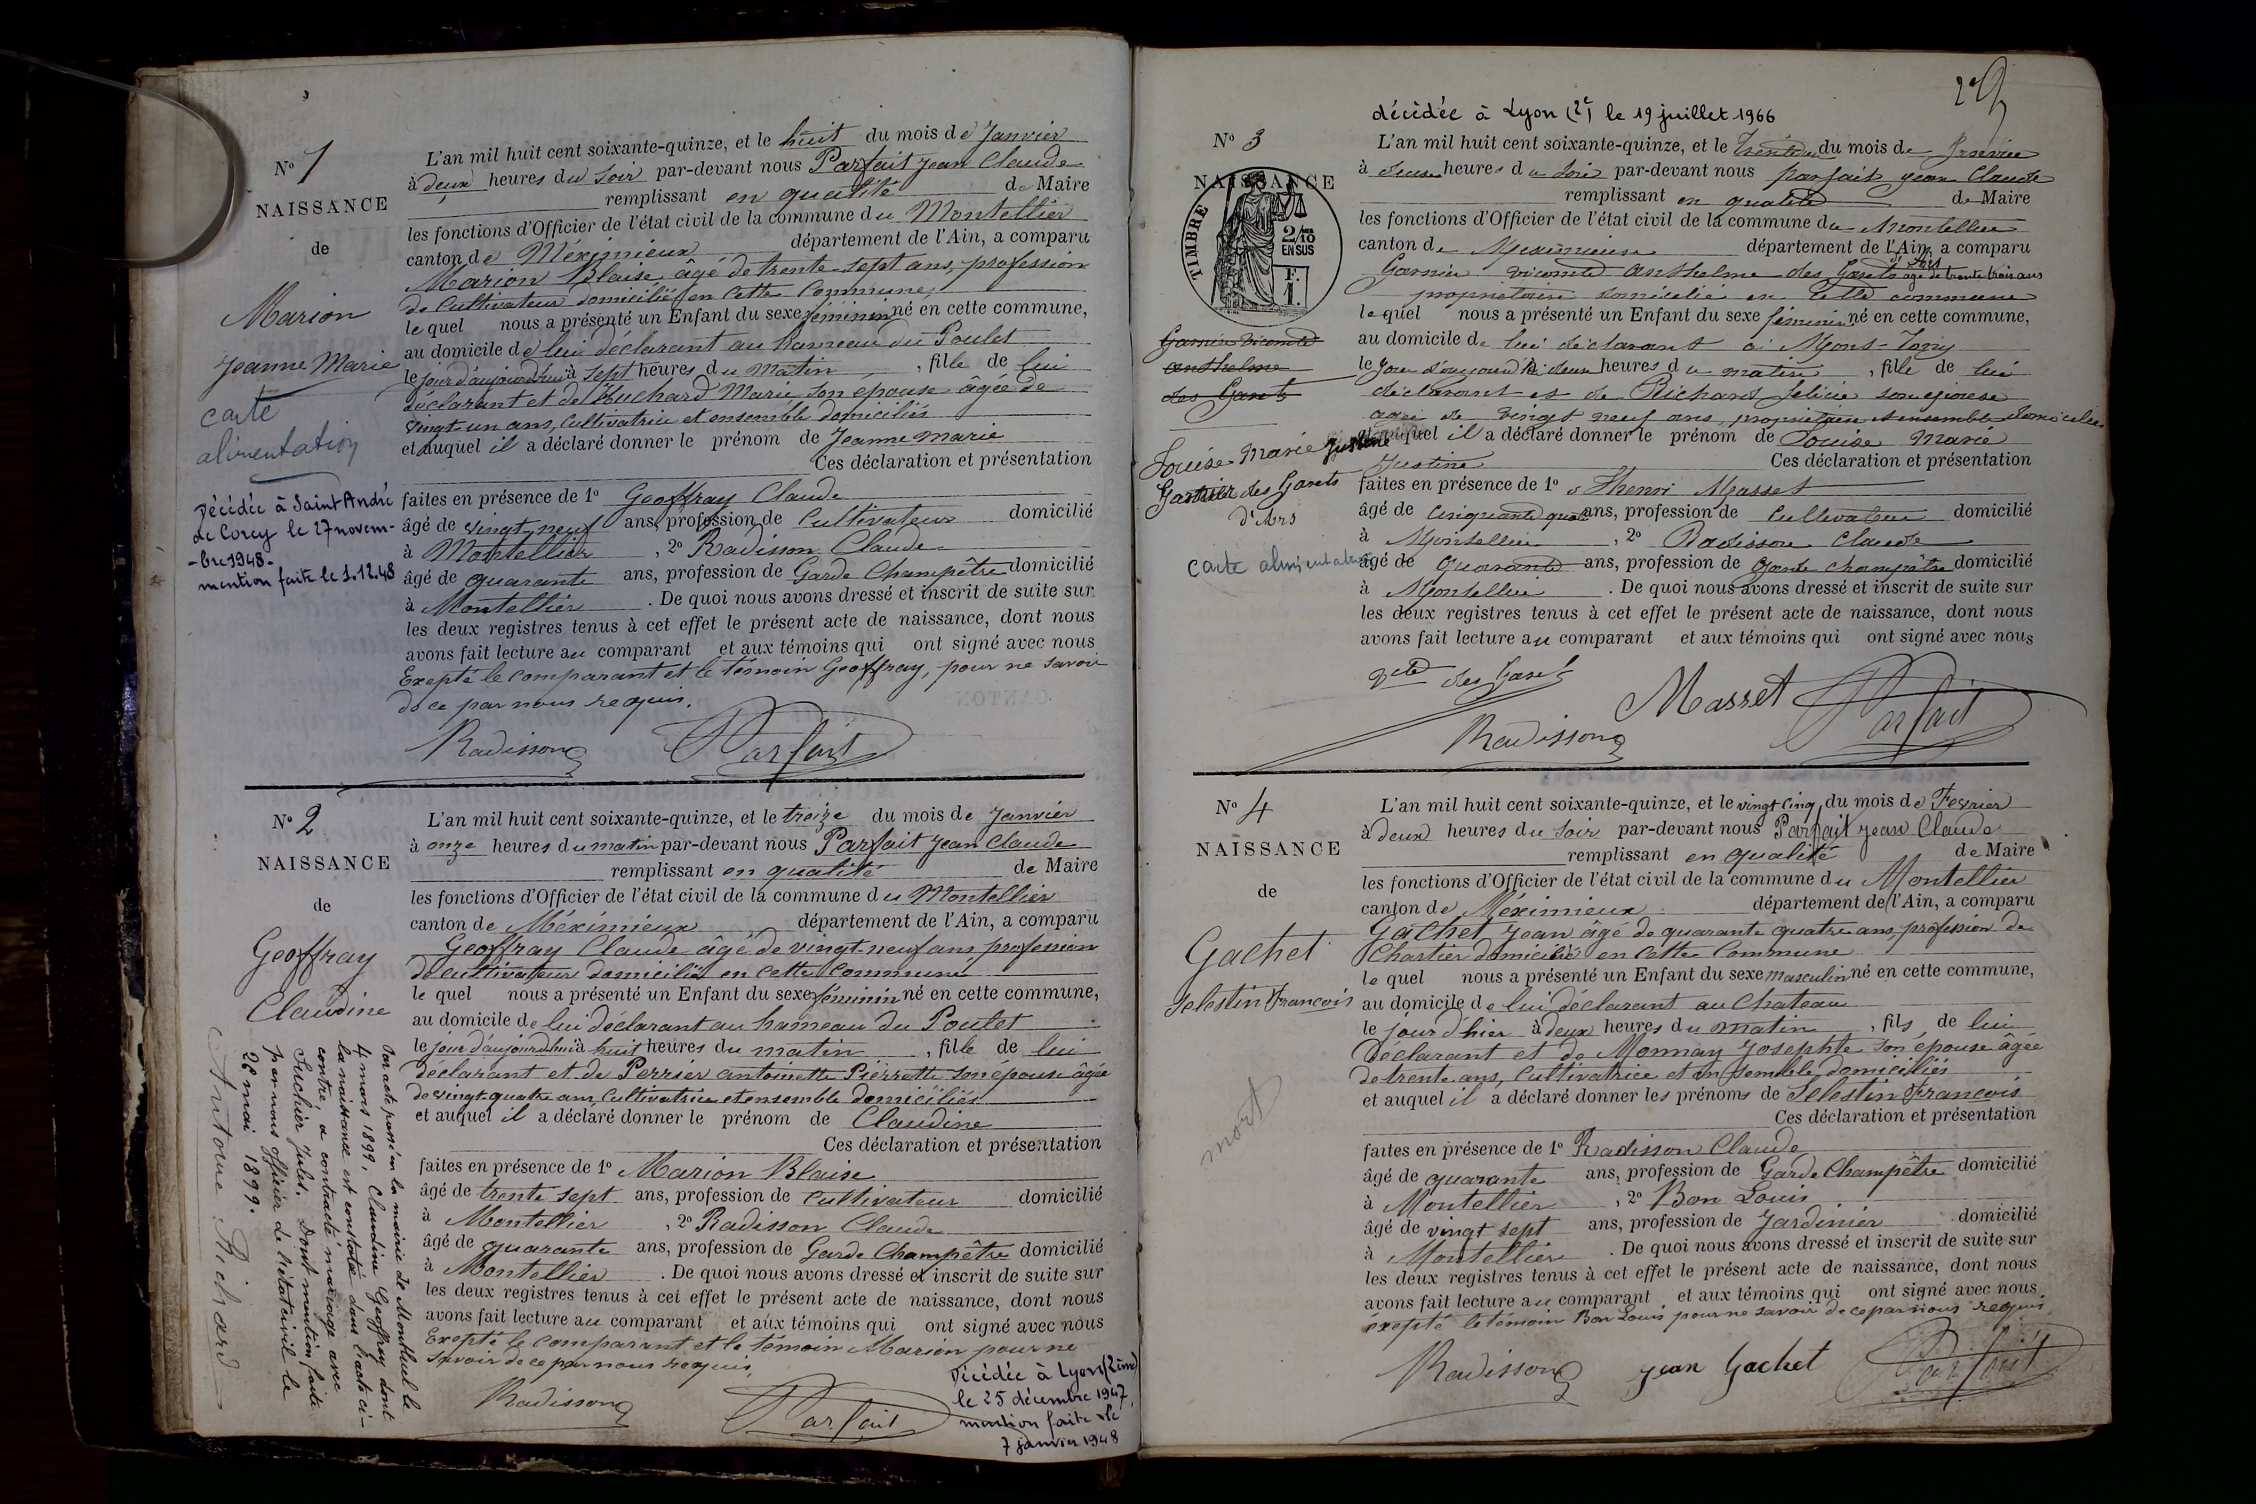 Nº 1
NAISSANCE
de
Marion
Jeanne Marie
carte
alimentation
Décédée à Saint André
de Corcy le 27 novem-
-bre 1948-
mention faite le 1.12.48
L'an mil huit cent soixante-quinze, et le huit du mois de Janvier
à deux heures du soir par-devant nous Parfait Jean Claude
remplissant en qualité de Maire
les fonctions d'Officier de l'état civil de la commune du Montellier
canton de Méximieux département de l'Ain, a comparu
Marion Blaise âgé de trente-sept ans, profession
de cultivateur domicilié en cette commune,
lequel nous a présenté un Enfant du sexe féminin né en cette commune,
au domicile de lui déclarant au hameau du Poulet
le jour d'aujourd'hui à sept heures du matin, fille de lui
déclarant et de Buchard Marie son épouse âgée de
vingt un ans, cultivatrice et ensemble domiciliés
et auquel il a déclaré donner le prénom de Jeanne marie
Ces déclaration et présentation
faites en présence de 1º Geoffray Claude
âgé de vingt-neuf ans, profession de cultivateur domicilié
à Montellier, 2º Radisson Claude
âgé de quarante ans, profession de Garde Champêtre domicilié
à Montellier. De quoi nous avons dressé et inscrit de suite sur
les deux registres tenus à cet effet le présent acte de naissance, dont nous
avons fait lecture au comparant et aux témoins qui ont signé avec nous
Exepté le comparant et le témoin Geoffray, pour ne savoir
de ce par nous requis.
Radisson Parfait
Nº 2
NAISSANCE
de
Geoffray
Claudine
Par acte passé en la mairie de Montluel le
4 mars 1899, Claudine Geoffray dont
la naissance est constatée dans l'acte ci-
contre, a contracté mariage avec
Suchier Jules. Dont mention faite
par nous officier de l'état civil le
22 mai 1899.
Antoine Richard
L'an mil huit cent soixante-quinze, et le treize du mois de Janvier
à onze heures du matin par-devant nous Parfait Jean Claude
remplissant en qualité de Maire
les fonctions d'Officier de l'état civil de la commune du Montellier
canton de Méximieux département de l'Ain, a comparu
Geoffray Claude âgé de vingt-neuf ans, profession
de cultivateur domicilié en cette commune
lequel nous a présenté un Enfant du sexe féminin né en cette commune,
au domicile de lui déclarant au hameau du Poulet
le jour d'aujourd'hui à huit heures du matin, fille de lui
déclarant et de Perrier antoinette Pierrette son épouse âgée
de vingt-quatre ans, cultivatrice et ensemble domiciliés
et auquel il a déclaré donner le prénom de Claudine
Ces déclaration et présentation
faites en présence de 1º Marion Blaise
âgé de trente sept ans, profession de cultivateur domicilié
à Montellier, 2º Radisson Claude
âgé de quarante ans, profession de Garde Champêtre domicilié
à Montellier. De quoi nous avons dressé et inscrit de suite sur
les deux registres tenus à cet effet le présent acte de naissance, dont nous
avons fait lecture au comparant et aux témoins qui ont signé avec nous
Exepté le comparant et le témoin Marion pour ne
savoir de ce par nous requis.
Radisson Parfait
Décédée à Lyon (2ème)
le 25 décembre 1947,
mention faite le
7 janvier 1948
décédée à Lyon (2e) le 19 juillet 1966
Nº 3
NAISSANCE
TIMBRE
2/10
EN SUS
F.
1.
Garnier vicomte
anthelme
des Garets
Louise Marie Justine
Garnier des Garets
d'Ars
carte alimentation
L'an mil huit cent soixante-quinze, et le du mois de Janvier
à heures du soir par-devant nous parfait jean Claude
remplissant en qualité de Maire
les fonctions d'Officier de l'état civil de la commune du Montellier
canton de Meximieux département de l'Ain, a comparu
Garnier vicomte anthelme des Garets d'Ars âgé de trente trois ans
propriétaire domicilié en cette commune
lequel nous a présenté un Enfant du sexe féminin né en cette commune,
au domicile de lui déclarant à
le jour d'aujourd'hui à deux heures du matin, fille de lui
déclarant et de Richard félicie son épouse
agée de vingt neuf ans, propriétaire et ensemble domiciliés
et auquel il a déclaré donner le prénom de Louise Marie
Justine Ces déclaration et présentation
faites en présence de 1º Masset
âgé de cinquante quatre ans, profession de cultivateur domicilié
à Montellier, 2º Radisson Claude
âgé de quarante ans, profession de garde champêtre domicilié
à Montellier. De quoi nous avons dressé et inscrit de suite sur
les deux registres tenus à cet effet le présent acte de naissance, dont nous
avons fait lecture au comparant et aux témoins qui ont signé avec nous
Vte des Garets Masset Parfait
Radisson
Nº 4
NAISSANCE
de
Gachet
Selestin Francois
mort
L'an mil huit cent soixante-quinze, et le vingt cinq du mois de Fevrier
à deux heures du soir par-devant nous Parfait Jean Claude
remplissant en qualité de Maire
les fonctions d'Officier de l'état civil de la commune du Montellier
canton de Méximieux département de l'Ain, a comparu
Gachet Jean âgé de quarante quatre ans, profession de
Chartier domicilié en cette commune
lequel nous a présenté un Enfant du sexe masculin né en cette commune,
au domicile de lui déclarant au Chateau
le jour d'hier à deux heures du matin, fils de lui
déclarant et de Monnay Josephte son épouse âgée
de trente ans, cultivatrice et ensemble domiciliés
et auquel il a déclaré donner les prénoms de Selestin Francois
Ces déclaration et présentation
faites en présence de 1º Radisson Claude
âgé de quarante ans, profession de Garde Champêtre domicilié
à Montellier, 2º Bon Louis
âgé de vingt sept ans, profession de Jardinier domicilié
à Montellier. De quoi nous avons dressé et inscrit de suite sur
les deux registres tenus à cet effet le présent acte de naissance, dont nous
avons fait lecture au comparant et aux témoins qui ont signé avec nous
éxepté le témoin Bon Louis pour ne savoir de ce par nous requis
Radisson Jean Gachet Parfait